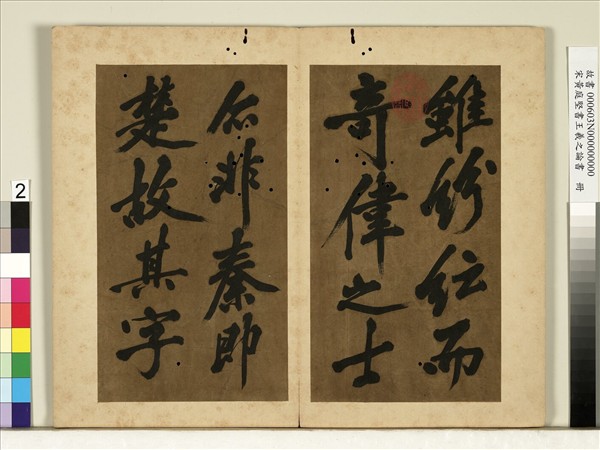 故書 000603N000000000
宋黃庭堅書王羲之論書 冊
雖紛紜而
奇偉之士
非秦即
楚故其字
2